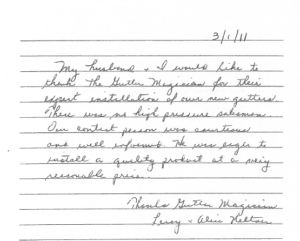 3/1/11
My husband + I would like to
thank The Gutter Magician for their
expert installation of our new gutters.
There was no high pressure salesman.
Our contact person was courteous
and well informed. He was eager to
install a quality product at a very
reasonable price.
Thanks Gutter Magician
Leroy + Alice